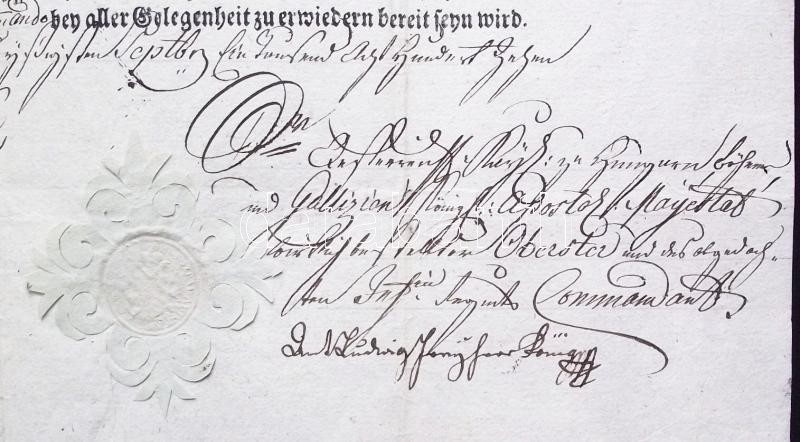 bey aller Gelegenheit zu erwiedern bereit seyn wird.
Septbr Ein Tausend Acht Hundert Zehen
Der
Oesterreich: Kays: zu Hungarn Böheim
und Gallizien Königl: Apostol: Mayestät
wirklich bestellter Oberster und des obgedach-
ten Inf: Regmts Commandant
Ludwig Freyherr